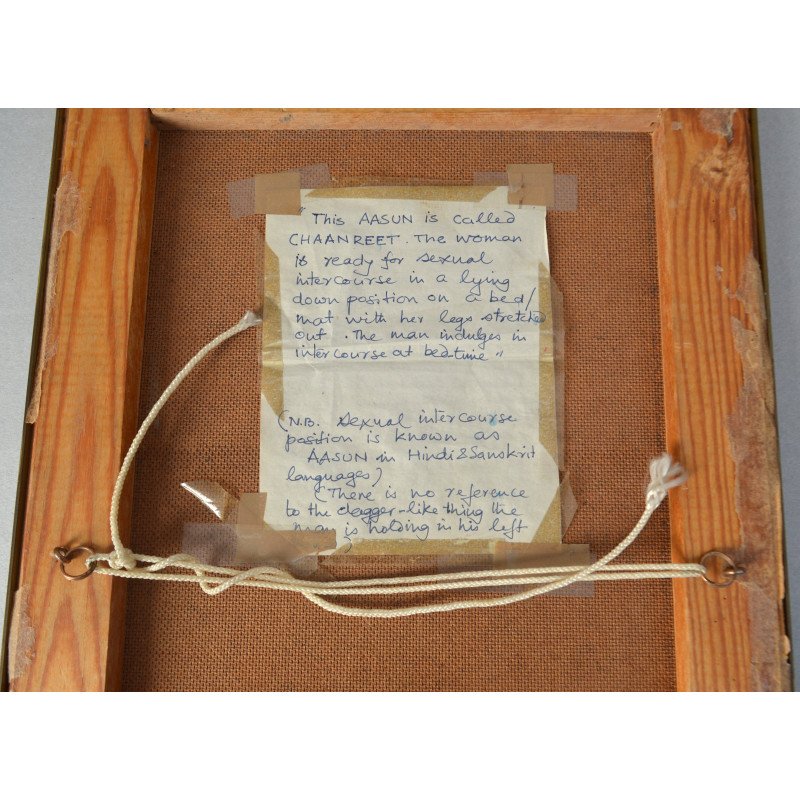 "This AASUN is called
CHAANREET. The woman
is ready for sexual
intercourse in a lying
down position on a bed/
mat with her legs stretched
out. The man indulges in
intercourse at bedtime"
(N.B. Sexual intercourse
position is known as
AASUN in Hindi & Sanskrit
languages)
(There is no reference
to the dagger-like thing the
man is holding in his left